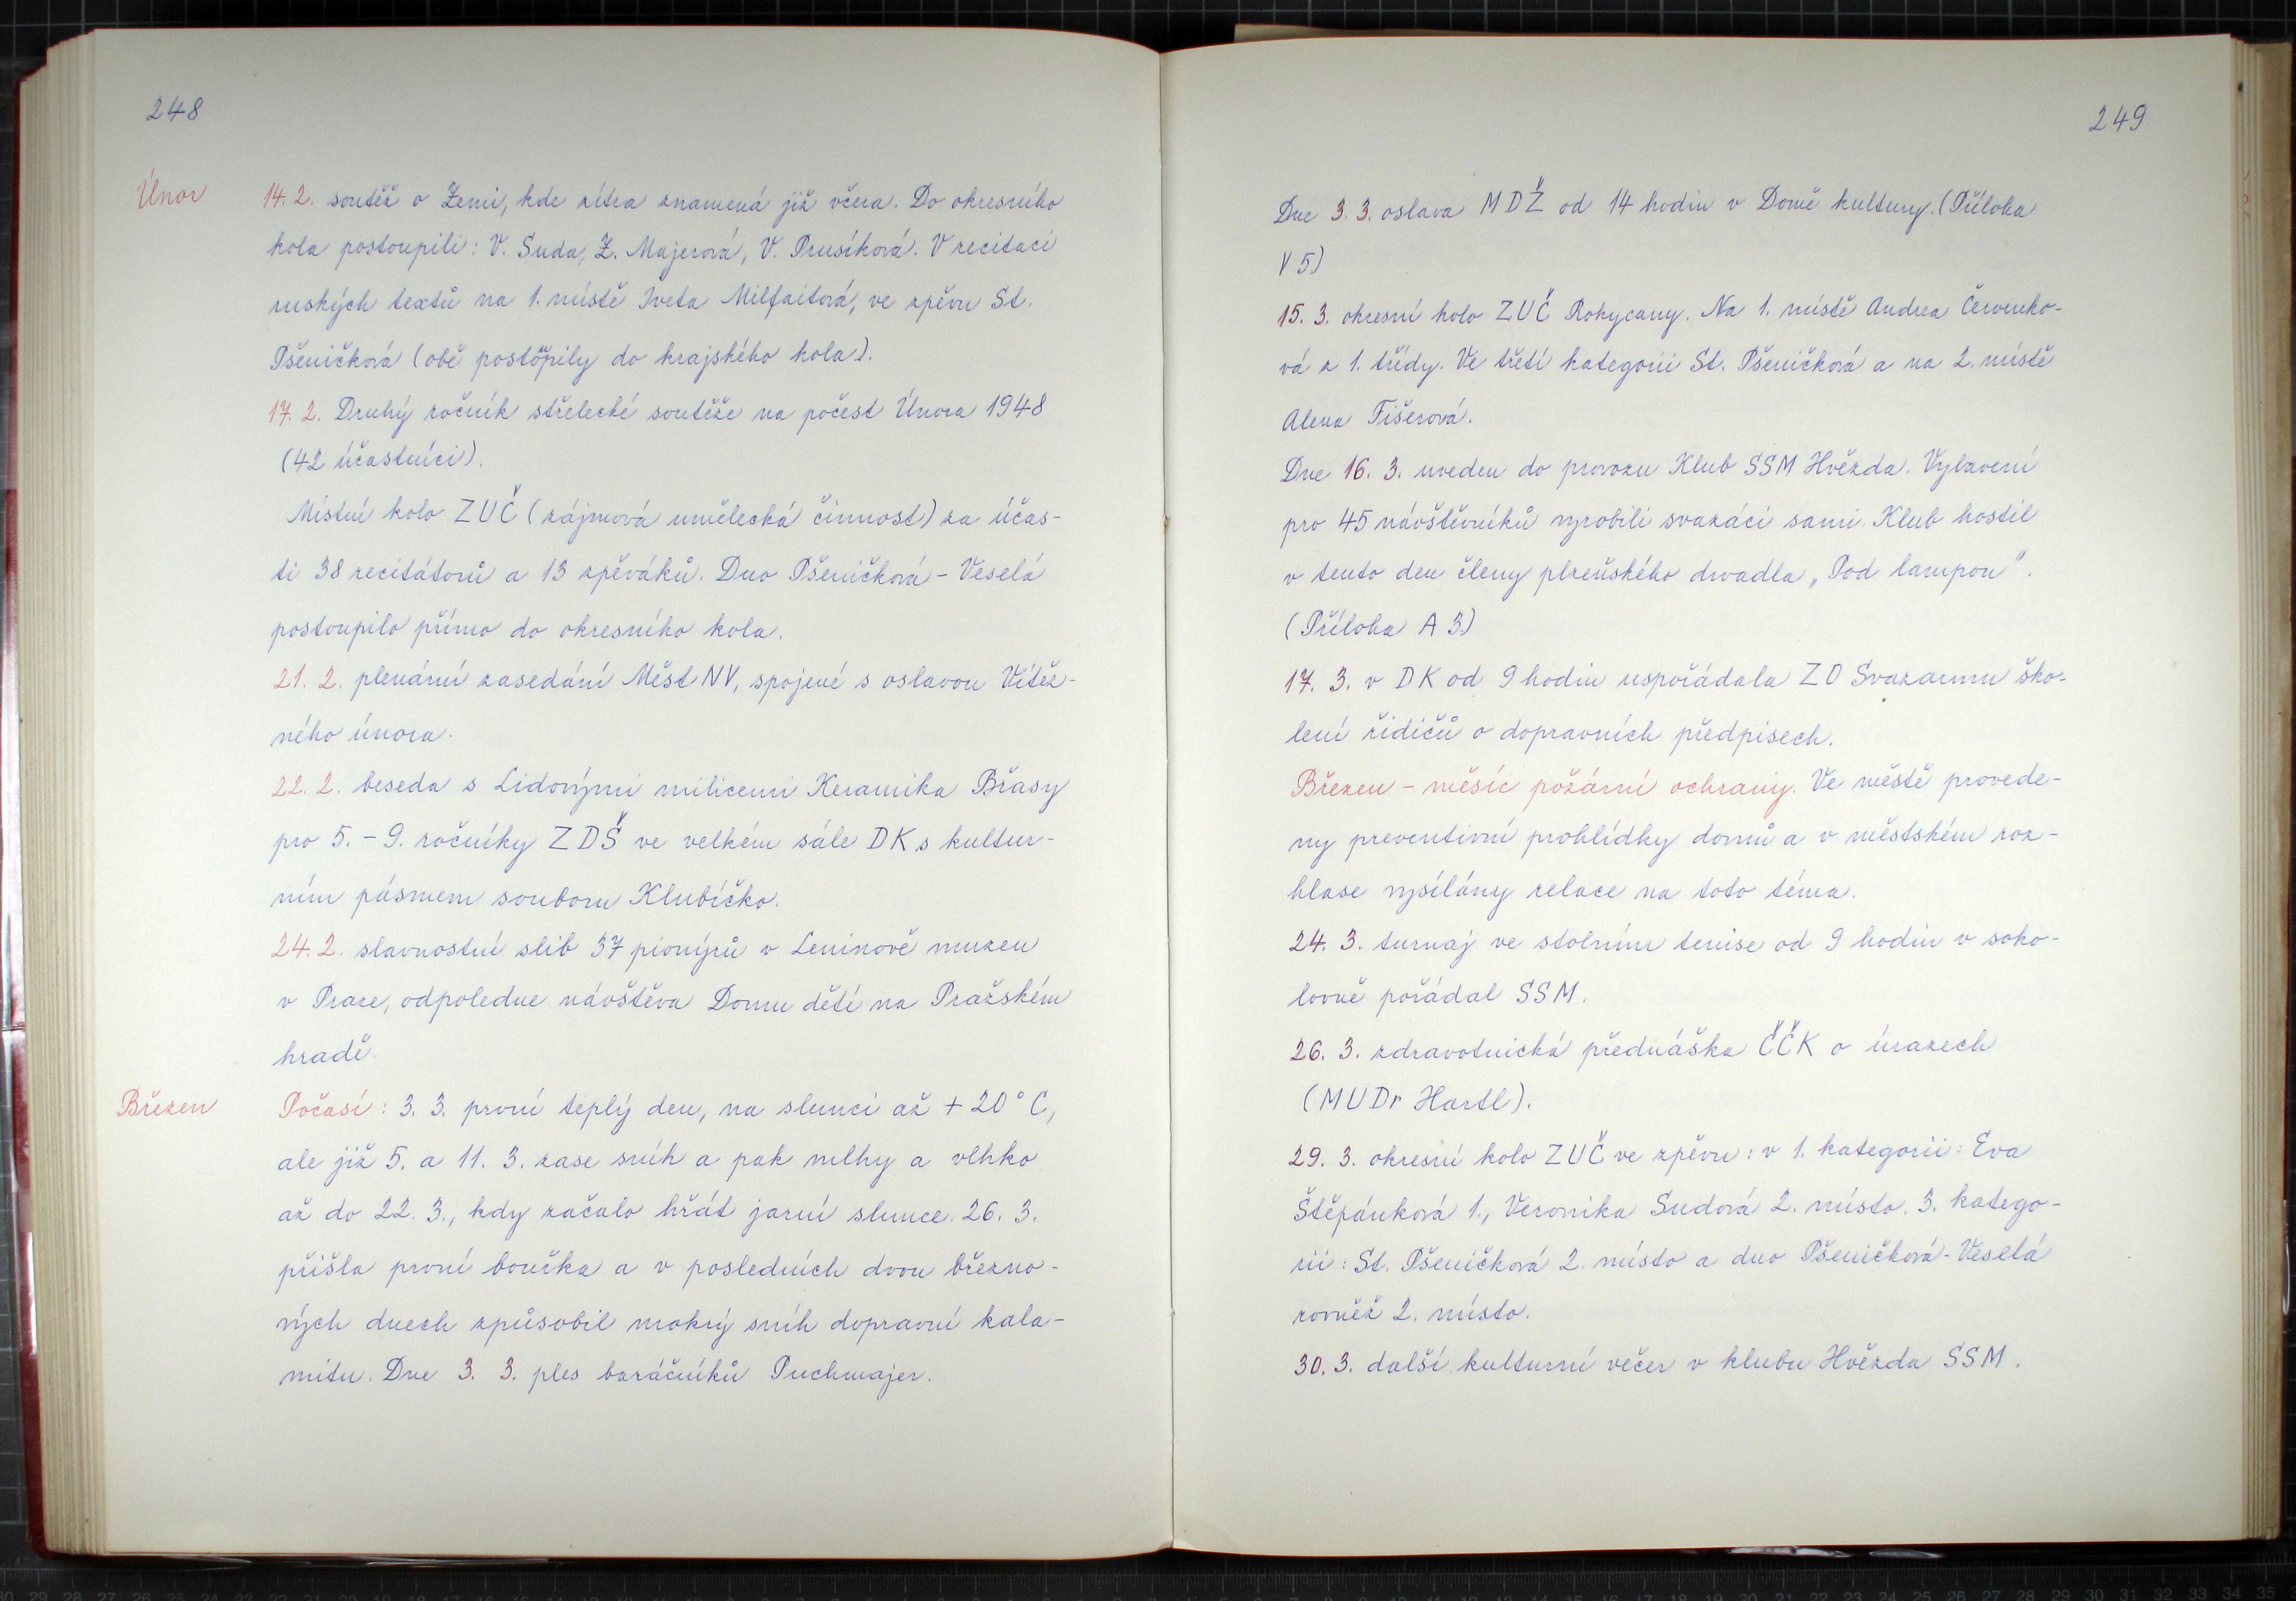 248
Únor 14. 2. soutěž o Zemi, kde zítra znamená již včera. Do okresního
kola postoupili: V. Suda, Z. Majerová, V. Prusíková. V recitaci
ruských textů na 1. místě Iveta Milfaitová, ve zpěvu St.
Pšeničková (obě postoupily do krajského kola).
17. 2. Druhý ročník střelecké soutěže na počest Února 1948
(42 účastníci).
Místní kolo ZUČ (zájmová umělecká činnost) za účas-
ti 38 recitátorů a 13 zpěváků. Duo Pšeničková - Veselá
postoupilo přímo do okresního kola.
21. 2. plenární zasedání Měst NV, spojené s oslavou Vítěz-
ného února.
22. 2. beseda s Lidovými milicemi Keramika Břasy
pro 5. - 9. ročníky ZDŠ ve velkém sále DK s kultur-
ním pásmem souboru Klubíčko.
24. 2. slavnostní slib 37 pionýrů v Leninově muzeu
v Praze, odpoledne návštěva Domu dětí na Pražském
hradě.
Březen Počasí: 3. 3. první teplý den, na slunci až + 20° C,
ale již 5. a 11. 3. zase sníh a pak mlhy a vlhko
až do 22. 3., kdy začalo hřát jarní slunce. 26. 3.
přišla první bouřka a v posledních dvou březno-
vých dnech způsobil mokrý sníh dopravní kala-
mitu. Dne 3. 3. ples baráčníků Puchmajer.
249
Dne 3. 3. oslava MDŽ od 14 hodin v Domě kultury. (Příloha
V 5)
15. 3. okresní kolo ZUČ Rokycany. Na 1. místě Andrea Červenko-
vá z 1. třídy. Ve třetí kategorii St. Pšeničková a na 2. místě
Alena Fišerová.
Dne 16. 3. uveden do provozu Klub SSM Hvězda. Vybavení
pro 45 návštěvníků vyrobili svazáci sami. Klub hostil
v tento den členy plzeňského divadla „Pod lampou".
(Příloha A 3)
17. 3. v DK od 9 hodin uspořádala ZO Svazarmu ško-
lení řidičů o dopravních předpisech.
Březen - měsíc požární ochrany. Ve městě provede-
ny preventivní prohlídky domů a v městském roz-
hlase vysílány relace na toto téma.
24. 3. turnaj ve stolním tenise od 9 hodin v soko-
lovně pořádal SSM.
26. 3. zdravotnická přednáška ČČK o úrazech
(MUDr Hartl).
29. 3. okresní kolo ZUČ ve zpěvu: v 1. kategorii: Eva
Štěpánková 1., Veronika Sudová 2. místo. 3. katego-
rii: St. Pšeničková 2. místo a duo Pšeničková - Veselá
rovněž 2. místo.
30. 3. další kulturní večer v klubu Hvězda SSM.